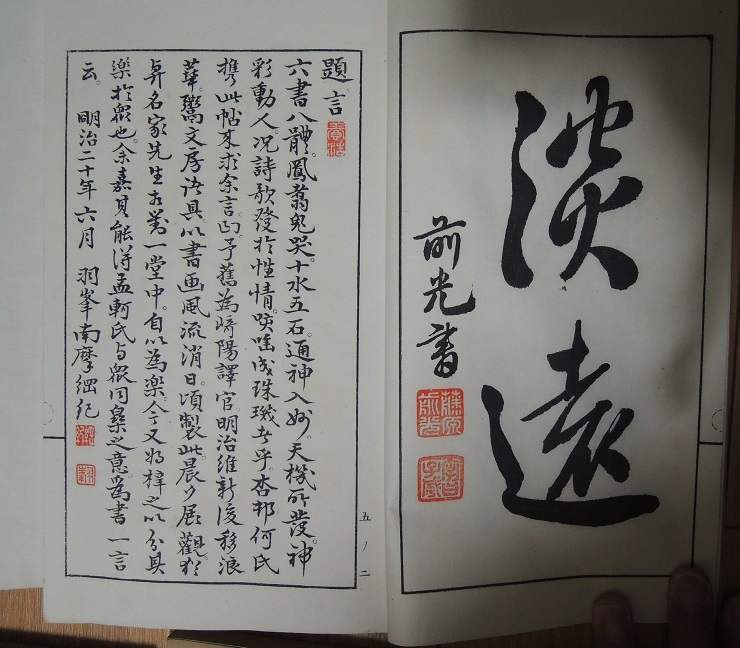 淡遠
前光書
藤原前光
題言
六書八體。鳳翥鬼哭。十水五石。通神入妙。天機所發。神
彩動人。况詩歌發於性情。咳唾成珠璣者乎。杏邨何氏
携此帖来求余言。曰予舊為崎陽譯官。明治維新後移浪
華。鬻文房諸具。以書画風流消日。頃製此晨夕展觀。猶
與名家先生相對一堂中。自以為樂。今又将梓之以分其
樂於衆也。余嘉其能得孟軻氏与衆同樂之意。為書一言
云。明治二十年六月　羽峯南摩綱紀
五ノ二